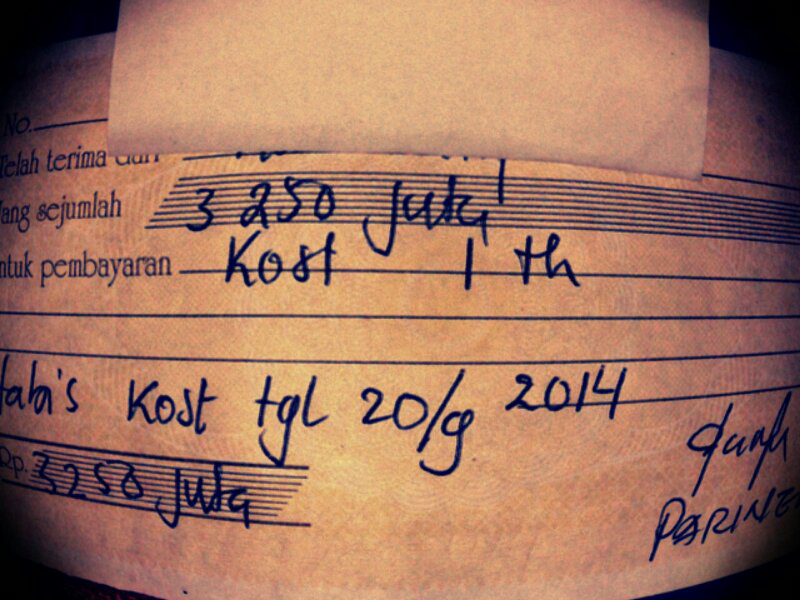 No.
Telah terima dari
ang sejumlah 3 250 juta
ntuk pembayaran Kost 1 th
Kost tgl 20/9 2014
Rp. 3250 juta